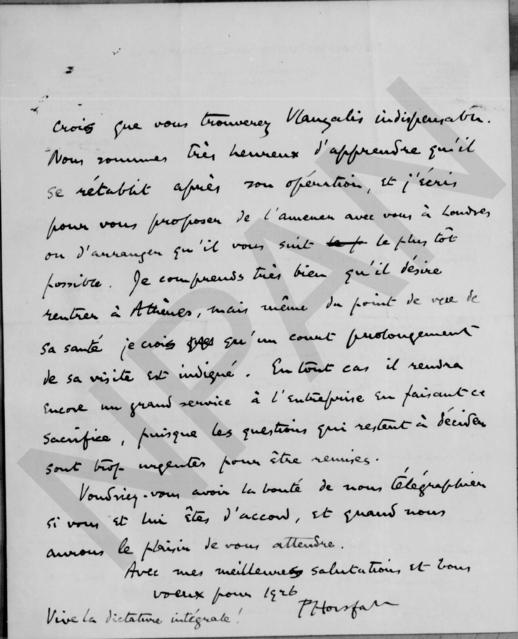 crois que vous trouverez Vlangalis indispensable.
Nous sommes très heureux d'apprendre qu'il
se rétablit après son opération, et j'écris
pour vous proposer de l'amener avec vous à Londres
ou d'arranger qu'il vous suit le plus tôt
possible. Je comprends très bien qu'il désire
rentrer à Athènes, mais même du point de vue de
sa santé je crois qu'un court prolongement
de sa visite est indiqué. En tout cas il rendra
encore un grand service à l'entreprise en faisant ce
sacrifice, puisque les questions qui restent à décider
sont trop urgentes pour être remises.
Voudriez-vous avoir la bonté de nous télégraphier
si vous et lui êtes d'accord, et quand nous
aurons le plaisir de vous attendre.
Avec mes meilleures salutations et bons
voeux pour 1926
PHorsfall
Vive la dictature intégrale!
NPAN